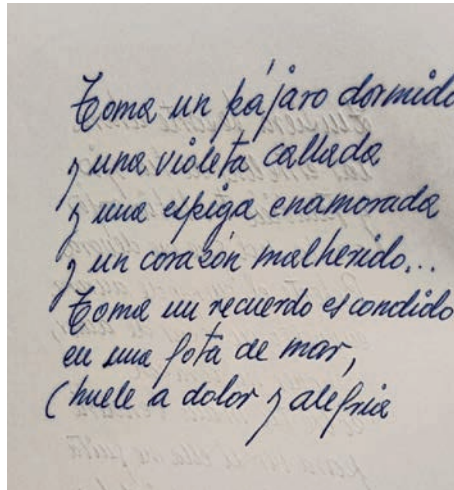 Toma un pájaro dormido
y una violeta callada
y una espiga enamorada
y un corazón malherido...
Toma un recuerdo escondido
en una gota de mar,
(huele a dolor y alegria